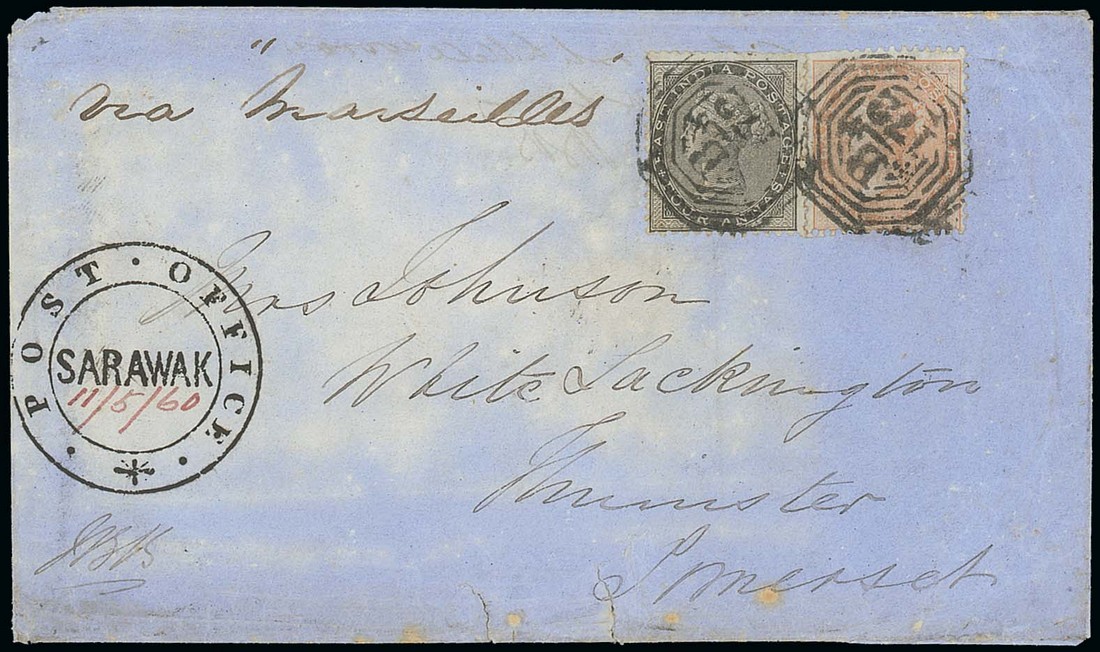 "via Marseilles"
EAST INDIA POSTAGE
FOUR ANNAS
B/172
B/172
POST · OFFICE
SARAWAK
11/5/60
Mrs Johnson
White Lackington
Ilminster
Somerset